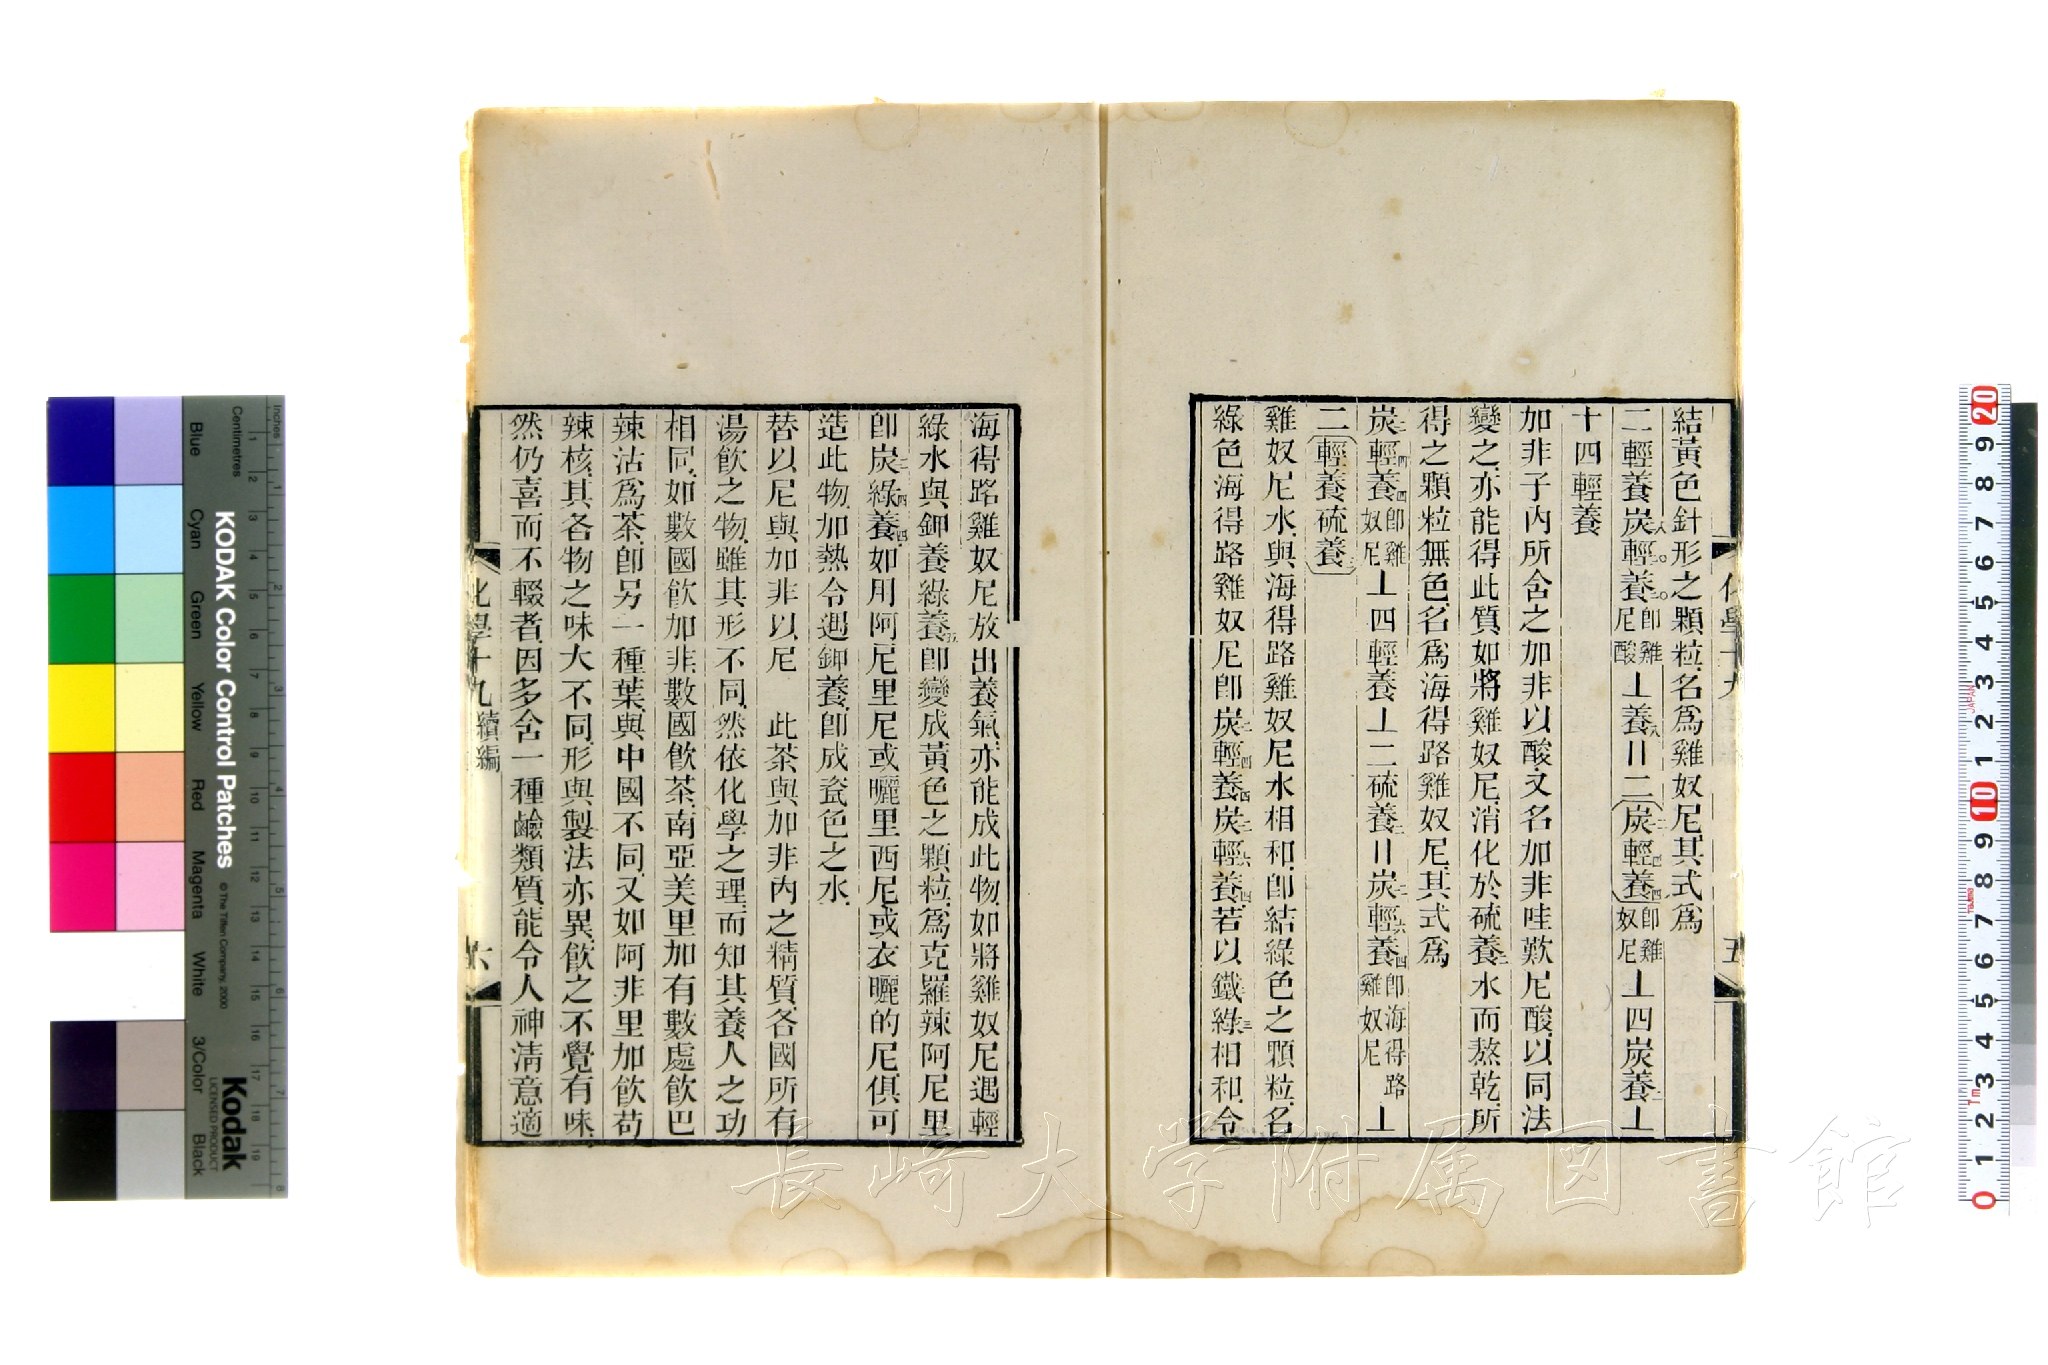 結黃色針形之顆粒名爲雞奴尼其式爲
二輕養炭輕養卽雞尼酸丄養八〢二炭輕養卽雞奴尼丄四炭養二丄
十四輕養
加非子內所含之加非以酸又名加非哇歎尼酸以同法
變之亦能得此質如將雞奴尼消化於硫養三水而熬乾所
得之顆粒無色名爲海得路雞奴尼其式爲
炭輕四養四卽雞奴尼丄四輕養丄二硫養二〢炭輕六養四卽海得路雞奴尼丄
二輕養硫養三
雞奴尼水與海得路雞奴尼水相和卽結綠色之顆粒名
綠色海得路雞奴尼卽炭輕四養四炭輕六養四若以鐵綠三相和令
化學十九
五
海得路雞奴尼放出養氣亦能成此物如將雞奴尼遇輕
綠水與鉀養綠養五卽變成黃色之顆粒爲克羅辣阿尼里
卽炭綠四養四如用阿尼里尼或曬里西尼或衣曬的尼俱可
造此物加熱令遇鉀養卽成瓷色之水
替以尼與加非以尼 此茶與加非內之精質各國所有
湯飮之物雖其形不同然依化學之理而知其養人之功
相同如數國飮加非數國飮茶南亞美里加有數處飮巴
辣沽爲茶卽另一種葉與中國不同又如阿非里加飮苟
辣核其各物之味大不同形與製法亦異飮之不覺有味
然仍喜而不輟者因多含一種鹼類質能令人神淸意適
化學十九續編
六
長崎大学附属図書館
KODAK Color Control Patches
© The Tiffen Company, 2000
Kodak
LICENSED PRODUCT
Inches
Centimetres
Blue
Cyan
Green
Yellow
Red
Magenta
White
3/Color
Black